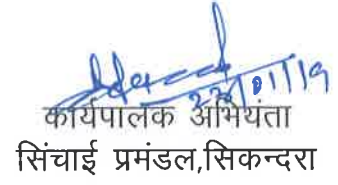 22/01/19
कार्यपालक अभियंता
सिंचाई प्रमंडल,सिकन्दरा